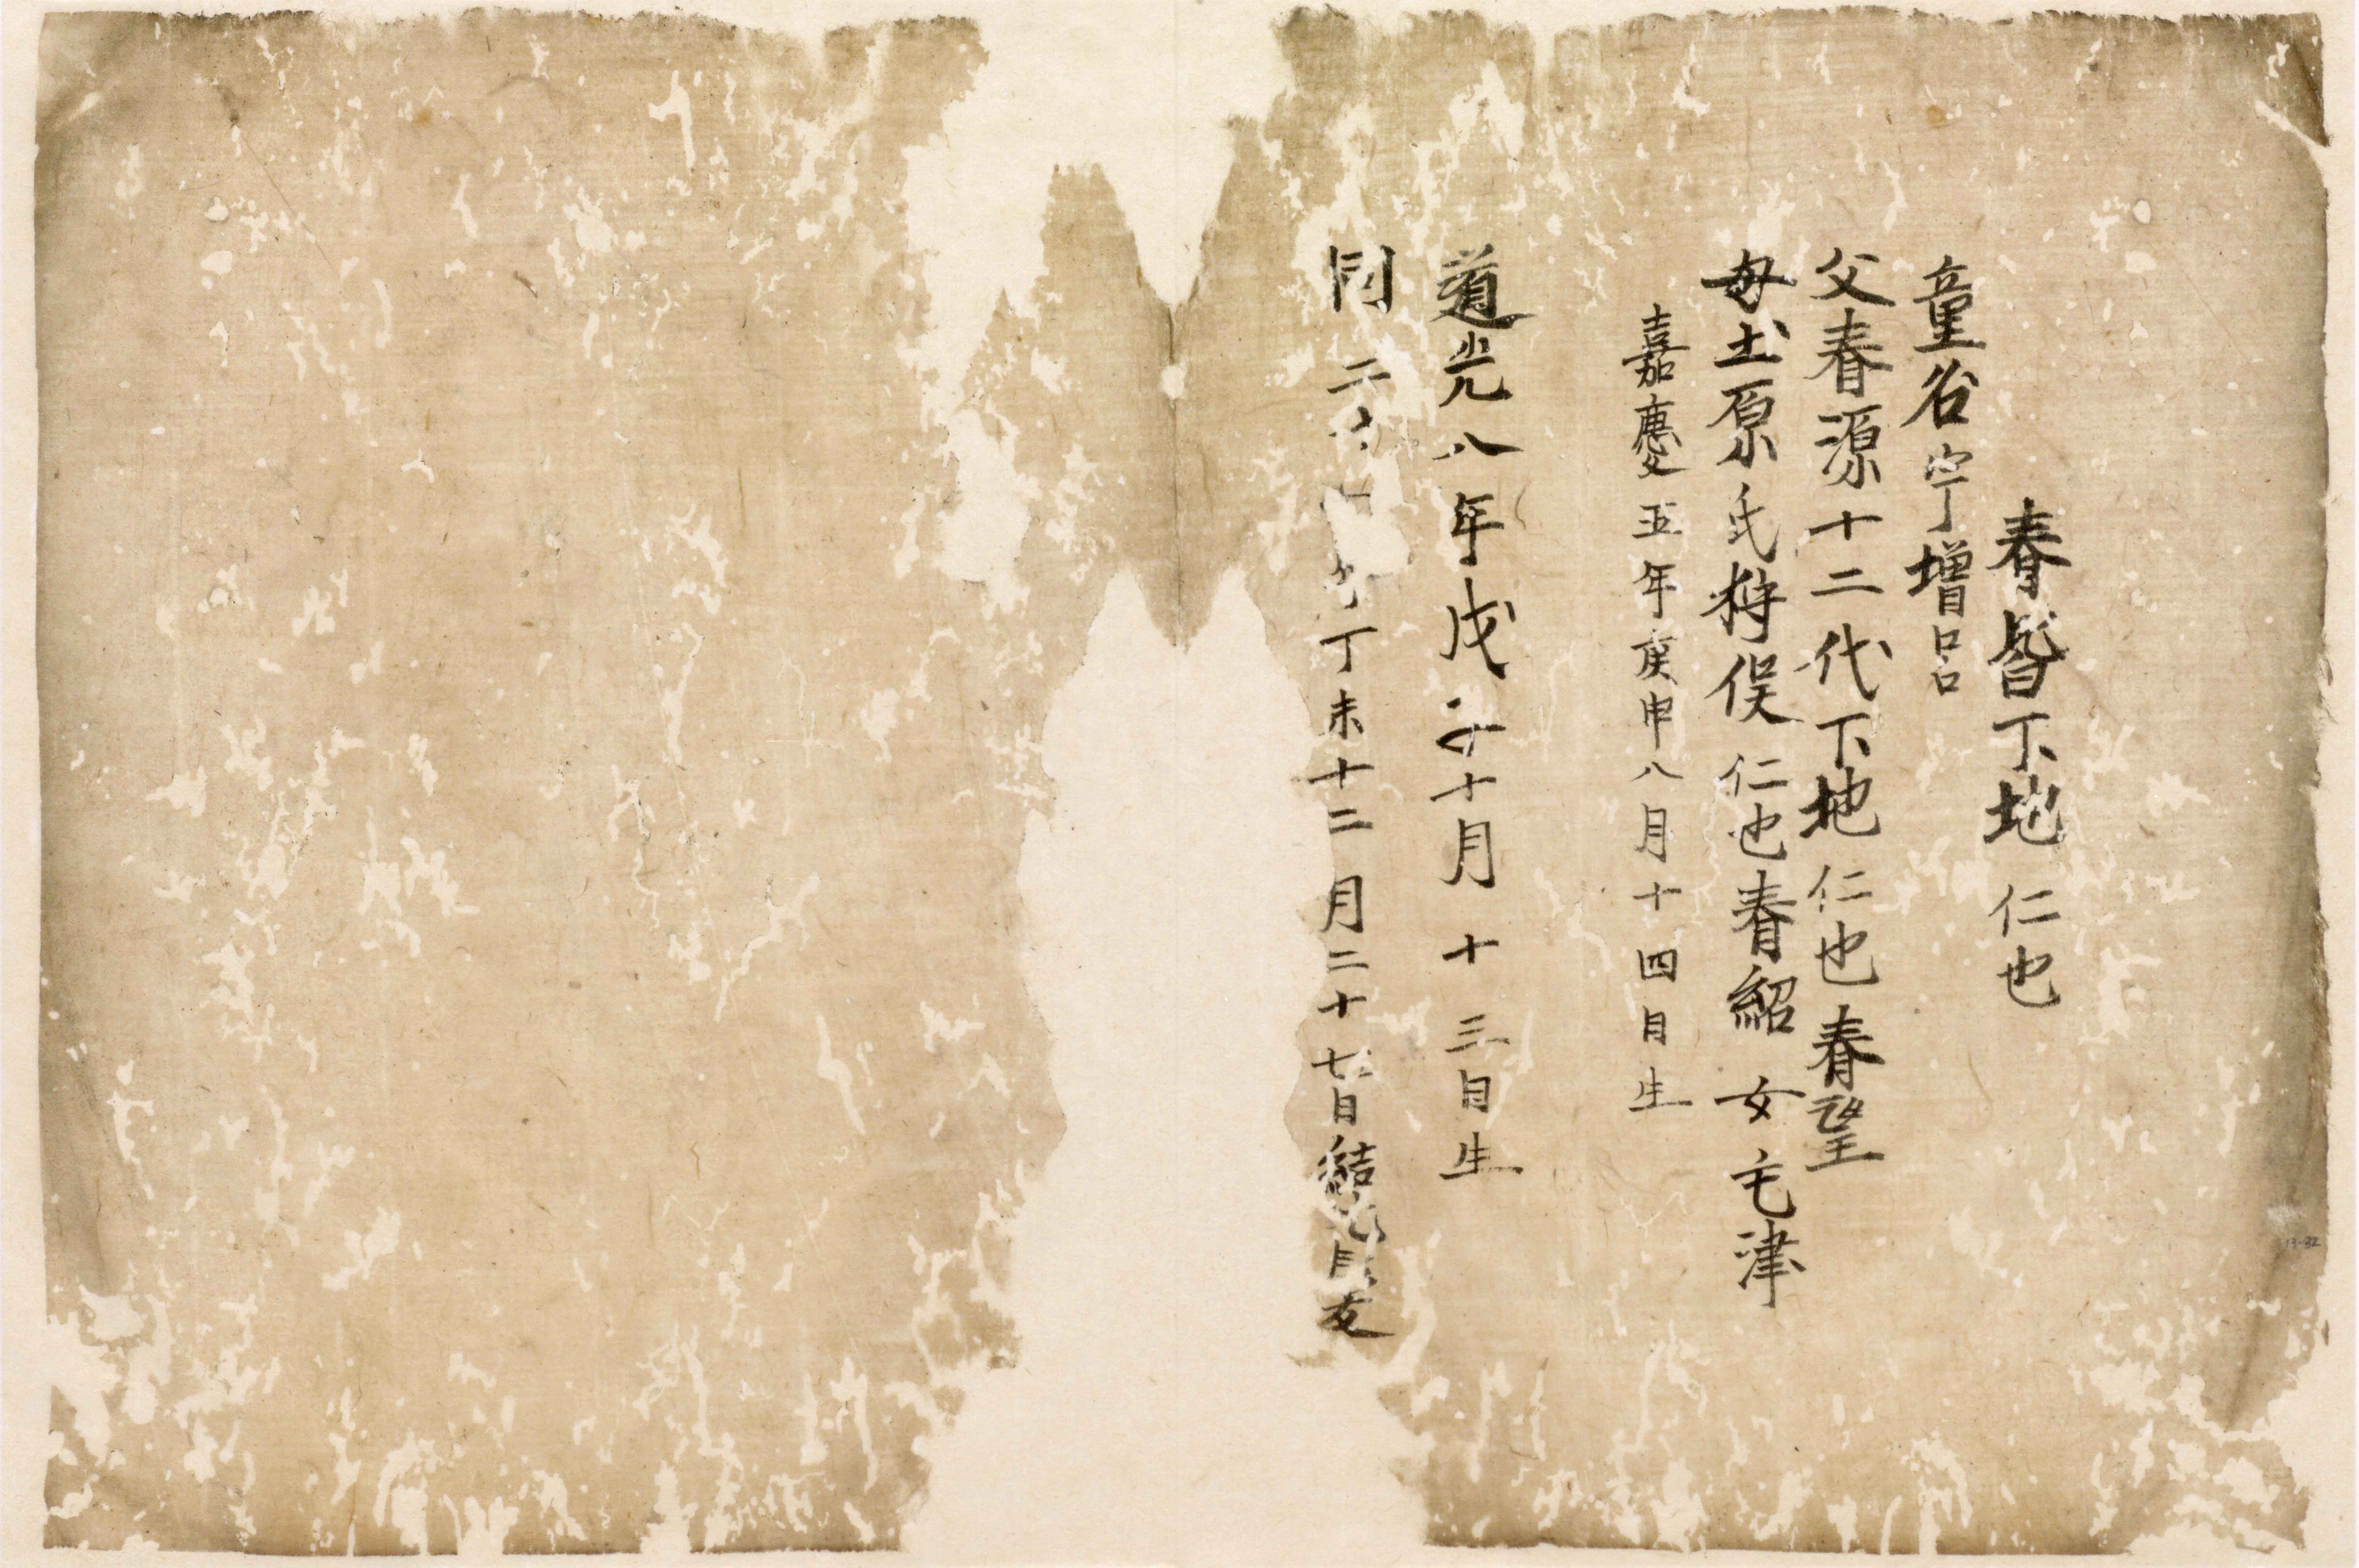 春皆下地仁也
童名宁增呂
父春源十二代下地仁也春望
母土原氏狩俣仁也春紹女毛津
嘉慶五年庚申八月十四日生
道光八年戊子十月十三日生
同二十七年丁未十二月二十七日結
13-32